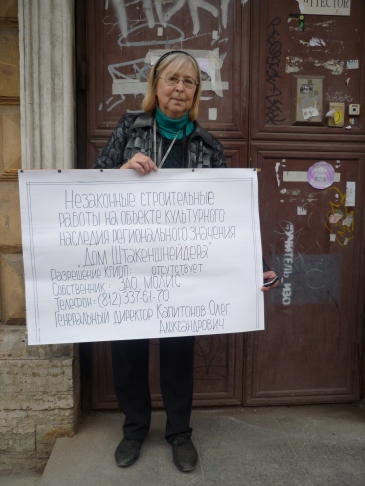 НЕТЕСТОR
Незаконные строительные
работы на объекте культурного
наследия регионального значения
"Дом Штакеншнейдера"
Разрешение КГИОП: отсутствует
Собственник: ЗАО МОЛИС
Телефон: (812) 337-61-70
Генеральный директор Капитонов Олег
Александрович